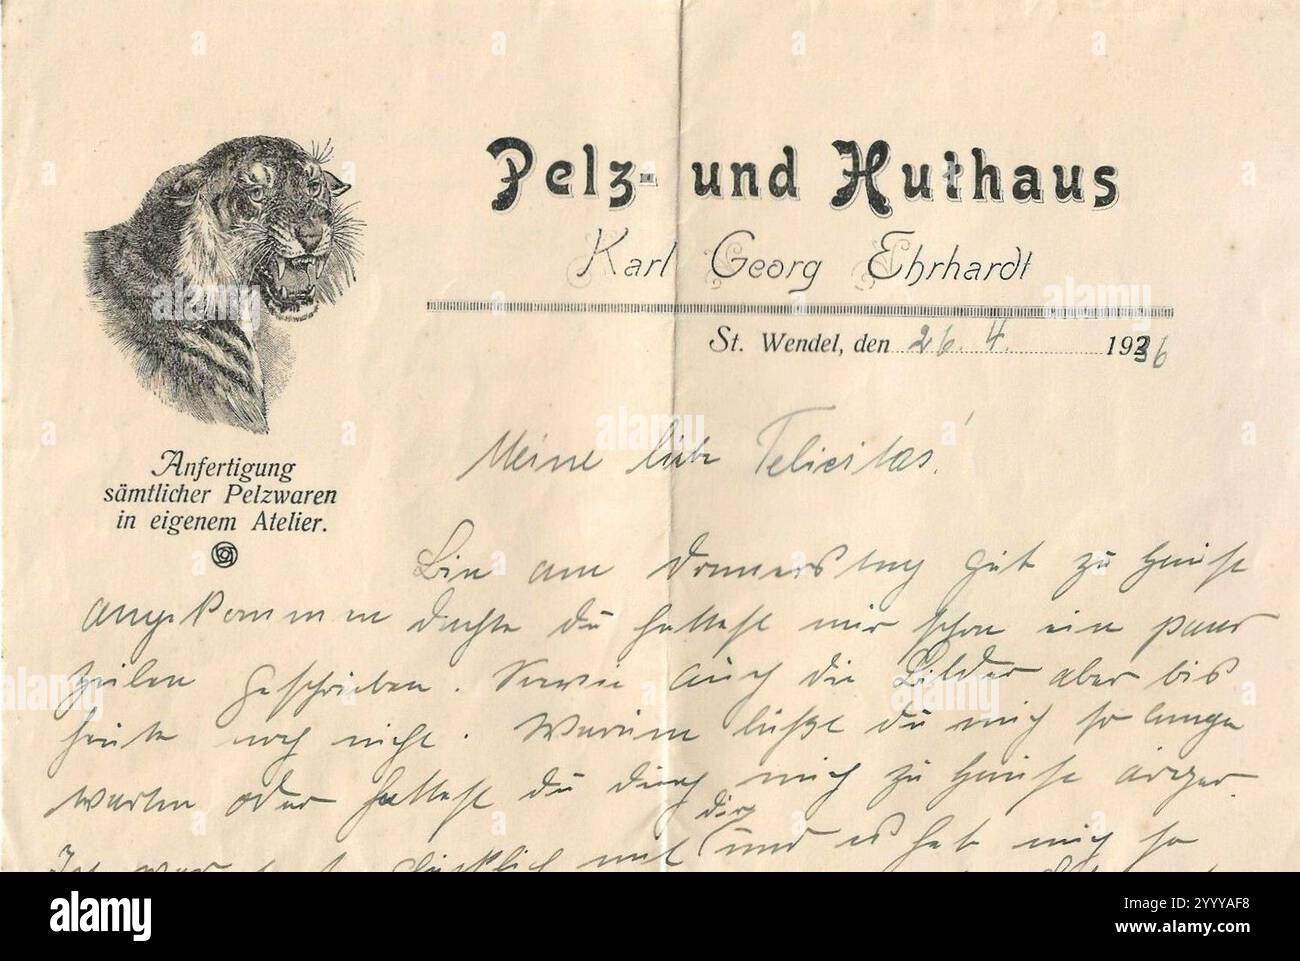 Pelz- und Huthaus
Karl Georg Ehrhardt
St. Wendel, den 26. 4. 1936
Anfertigung
sämtlicher Pelzwaren
in eigenem Atelier.
Meine liebe Felicitas!
Bin am Donnerstag gut zu Hause
angekommen dachte du hattest mir schon ein paar
Zeilen geschrieben. Sowie auch die Bilder aber bis
heute noch nicht. Warum läßt du mich so lange
warten oder hattest du durch mich zu Hause ärger.
Ich war glücklich mit dir und es hat mich so
alamy
Image ID: 2YYYAF8
www.alamy.com